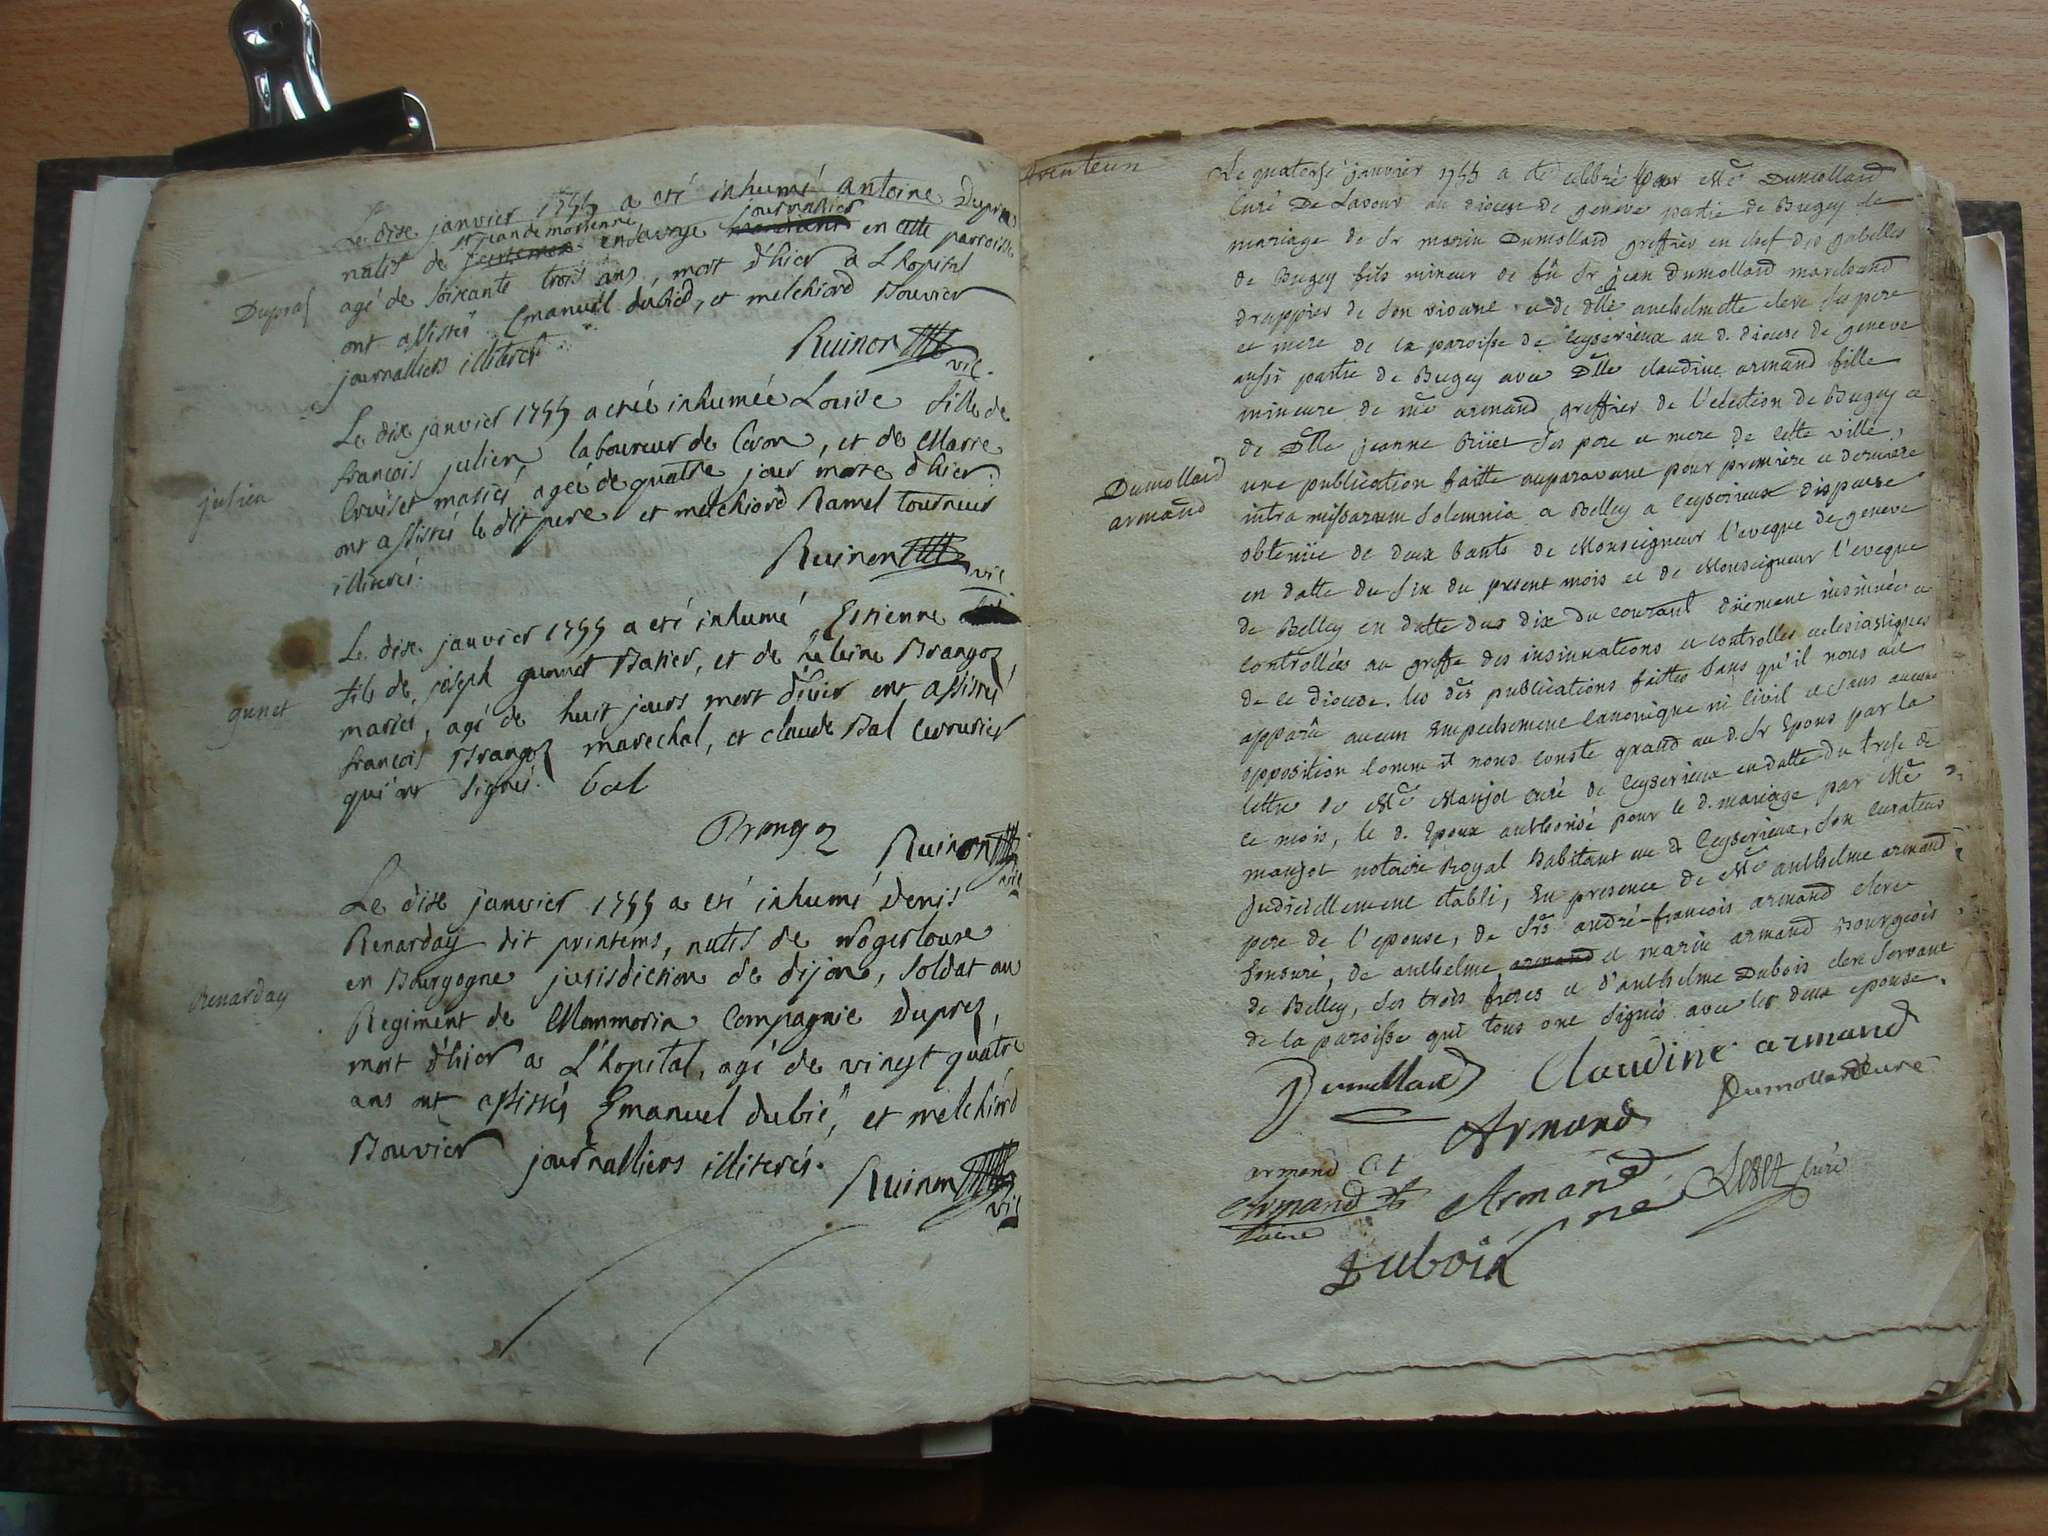 Le dixe janvier 1755 a eté inhumé antoine Dupras
st jean de morienne journalier
natif de en Savoye en cette parroisse
Dupras
agé de soixante trois ans, mort d'hier a L'hopital
ont assistés Emanuel dubié, et melchiord Bouvier
journalliers illiterés
Ruinon vic.
julien
Le dix janvier 1755 a eteé inhumée Louise fille de
françois julien, laboureur de Coron, et de Marie
Cruiset mariés, ageé de quatre jour morte d'hier.
ont assistés le dit pere et melchiord Ramel tourneur
illiterés.
Ruinon vic
gunet
Le dixe janvier 1755 a eté inhumé Estienne
fils de joseph gunnet Batier, et de heleine Brangoz
mariés, agé de huit jours mort d'hier ont assistés
françois Brangoz marechal, et claude Bal Cerrurier
qui ont signés. bal
Brangoz Ruinon vic
Renarday
Le dixe janvier 1755 a eté inhumé denis
Renarday dit printems, natif de
en Bourgogne jurisdiction de dijon, soldat au
Regiment de Monmorin Compagnie Duprez,
mort d'hier a L'hopital, agé de vingt quatre
ans ont assistés Emanuel dubié, et melchiord
Bouvier journalliers illiterés.
Ruinon vic
Le quatorse janvier 1755 a eté celebré par Mre Dumollard
Curé De Lavour au diocese de geneve partie de Bugey le
mariage de Sr marin Dumollard greffier en chef des gabelles
de Bugey fils mineur de fû Sr jean Dumollard marchand
drappier de son vivant et de dlle anthelmette clerc ses pere
et mere de la paroisse de Ceyserieux au d. diocese de geneve
aussi partie de Bugey avec Dlle claudine armand fille
mineure de me armand greffier de l'election de Bugey et
de Dlle jeanne ses pere et mere de cette ville,
Dumollard
armand
une publication faitte auparavant pour premiere et derniere
intra missarum solemnia a Belley a Ceyserieux dispense
obtenüe de deux bants de Monseigneur l'eveque de geneve
en datte du six du present mois et de Monseigneur l'eveque
de Belley en datte du dix du courant düement insinuée et
controllées au greffe des insinuations et controlles ecclesiastiques
de ce diocese. les des publications faittes sans qu'il nous ait
apparû aucun empechement canonique ni civil et sans aucune
opposition comm il nous conste quand au d. Sr Epoux par la
lettre de Mre Manjot curé de Ceyserieux en datte du trese de
ce mois, le d. Epoux authorisé pour le d. mariage par Me
manjot notaire Royal habitant au d. Ceyserieux, son curateur
judiciellement etabli, En presence de Me anthelme armand
pere de l'epouse, de Srs andré-françois armand clerc
tonsuré, de anthelme armand et marin armand Bourgeois
de Belley, ses trois freres et d'anthelme Dubois clerc servant
de la paroisse qui tous ont signés avec les deux epouse.
Dumollard Claudine armand
Armand Dumollard curé
armand
Armand Armand curé
Dubois